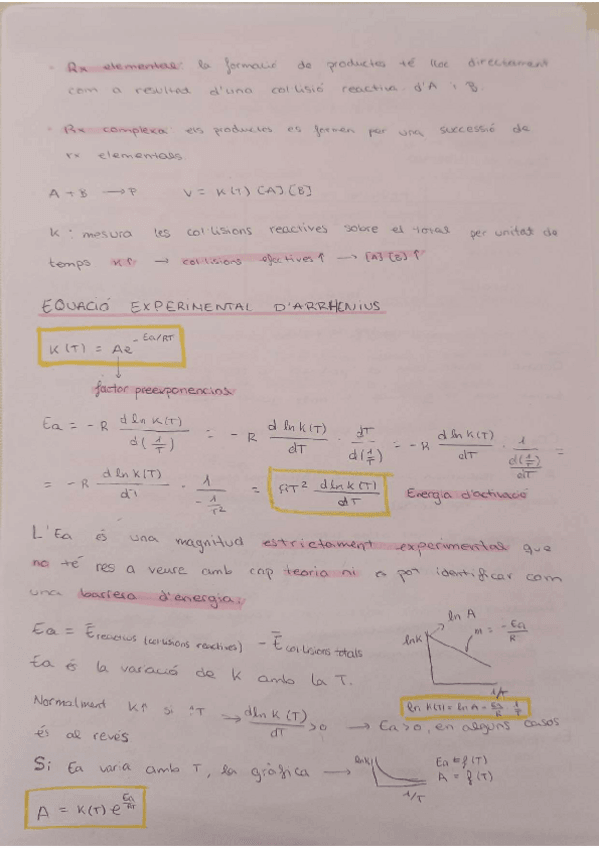 · Rx elemental: la formació de productes té lloc directament
com a resultat d'una col·lisió reactiva d'A i B.
· Rx complexa: els productes es formen per una successió de
rx elementals.
A + B → P    V = K(T) [A] [B]
K : mesura les col·lisions reactives sobre el total per unitat de
temps K↑ → col·lisions efectives ↑ → [A] [B] ↑
EQUACIÓ EXPERIMENTAL D'ARRHENIUS
K(T) = Ae^{-Ea/RT}
factor preexponencial
Ea = - R \frac{d ln K(T)}{d(\frac{1}{T})} = - R \frac{d ln K(T)}{dT} · \frac{dT}{d(\frac{1}{T})} = - R \frac{d ln K(T)}{dT} · \frac{1}{\frac{d(\frac{1}{T})}{dT}} =
= - R \frac{d ln K(T)}{dT} · \frac{1}{-\frac{1}{T^2}} = RT² \frac{d ln K(T)}{dT}    Energia d'activació
L'Ea és una magnitud estrictament experimental que
no té res a veure amb cap teoria ni es pot identificar com
una barrera d'energia.
Ea = Ē reactius (col·lisions reactives) - Ē col·lisions totals
Ea és la variació de K amb la T.
ln K
ln A
m = -\frac{Ea}{R}
1/T
ln K(T) = ln A - \frac{Ea}{R} · \frac{1}{T}
Normalment K↑ si ↑T → \frac{d ln K(T)}{dT} > 0 → Ea > 0, en alguns casos
és al revés
Si Ea varia amb T, la gràfica →
ln K
1/T
Ea = f(T)
A = f(T)
A = K(T) e^{\frac{Ea}{RT}}